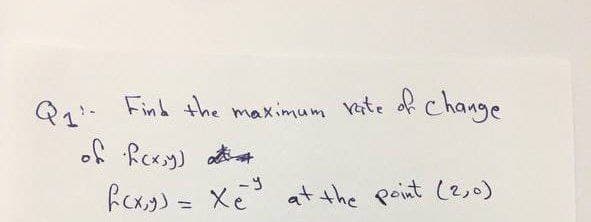 Q1:- Find the maximum rate of change
of f(x,y)
f(x,y) = xe^-y at the point (2,0)